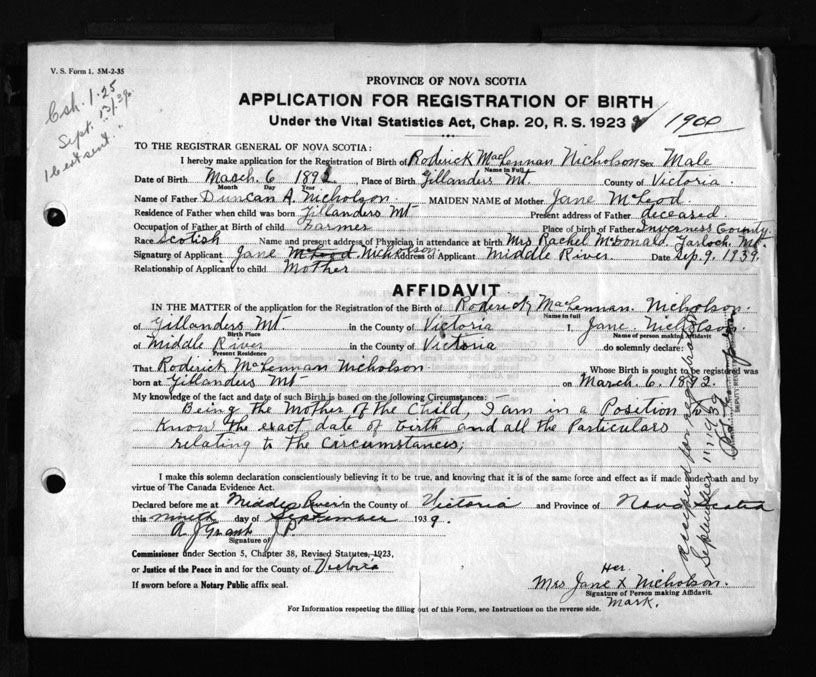 V. S. Form 1. 5M-2-35
Csh. 1.25
Sept. 13/39
PROVINCE OF NOVA SCOTIA
APPLICATION FOR REGISTRATION OF BIRTH
Under the Vital Statistics Act, Chap. 20, R. S. 1923
1900
TO THE REGISTRAR GENERAL OF NOVA SCOTIA:
I hereby make application for the Registration of Birth of Roderick MacLennan Nicholson Sex Male
Name in Full
Date of Birth March 6 1892, Place of Birth Gillanders Mt. County of Victoria.
Month Day Year
Name of Father Duncan A. Nicholson. MAIDEN NAME of Mother Jane McLeod.
Residence of Father when child was born Gillanders Mt Present address of Father deceased.
Occupation of Father at Birth of child Farmer Place of Birth of Father Inverness County.
Race Scotish Name and present address of Physician in attendance at birth Mrs Rachel McDonald.
Signature of Applicant Jane McLeod. Nicholson. Address of Applicant Middle River. Date Sep. 9. 1939.
Relationship of Applicant to child Mother
AFFIDAVIT
IN THE MATTER of the application for the Registration of the Birth of Roderick MacLennan. Nicholson.
Name in full
of Gillanders Mt. in the County of Victoria I, Jane Nicholson
Birth Place Name of person making Affidavit
of Middle River in the County of Victoria do solemnly declare:
Present Residence
That Roderick McLennan Nicholson Whose Birth is sought to be registered was
born at Gillanders Mt on March. 6. 1892.
My knowledge of the fact and date of such Birth is based on the following Circumstances:
Being the Mother of the Child, I am in a Position to
Know the exact date of birth and all the Particulars
relating to the Circumstances;
I make this solemn declaration conscientiously believing it to be true, and knowing that it is of the same force and effect as if made under oath and by
virtue of The Canada Evidence Act.
Declared before me at Middle River in the County of Victoria and Province of Nova Scotia
this ninth day of September 1939.
A J Grant J.P.
Signature of
Commissioner under Section 5, Chapter 38, Revised Statutes, 1923,
or Justice of the Peace in and for the County of Victoria
If sworn before a Notary Public affix seal.
Her
Mrs Jane X Nicholson.
Signature of Person making Affidavit.
Mark.
For Information respecting the filling out of this Form, see Instructions on the reverse side.
Accepted for registration
September 11-1939